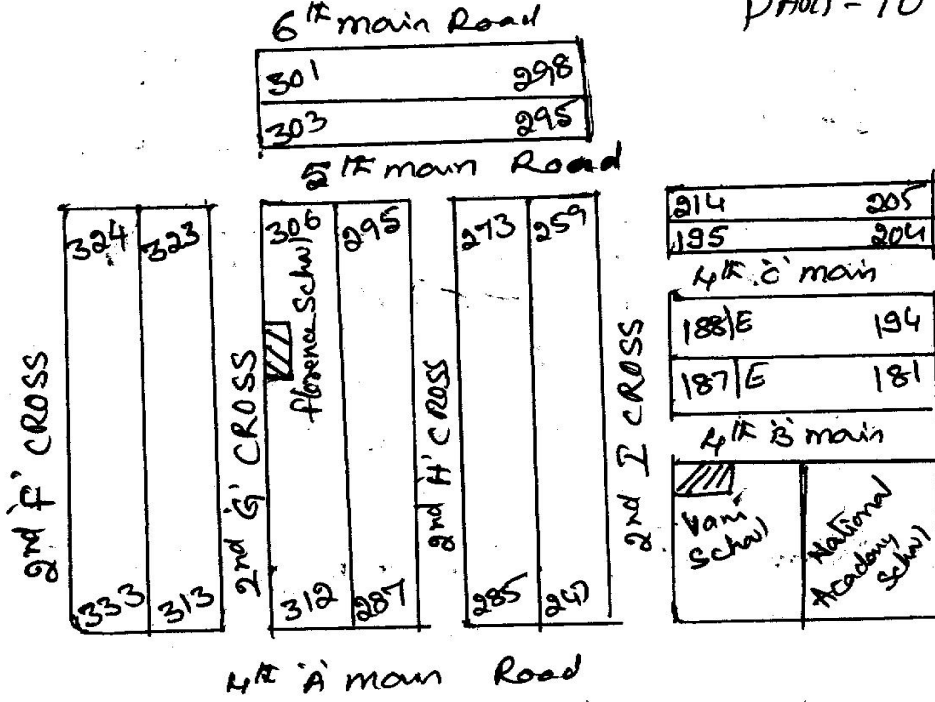 6th main Road
301 298
303 295
5th main Road
324 323 306 295 273 259
214 205
195 204
4th 'C' main
188/E 194
187/E 181
4th 'B' main
florence School
2nd 'F' CROSS
2nd 'G' CROSS
2nd 'H' CROSS
2nd I CROSS
Vani School
National Academy School
333 313 312 287 285
4th 'A' main Road